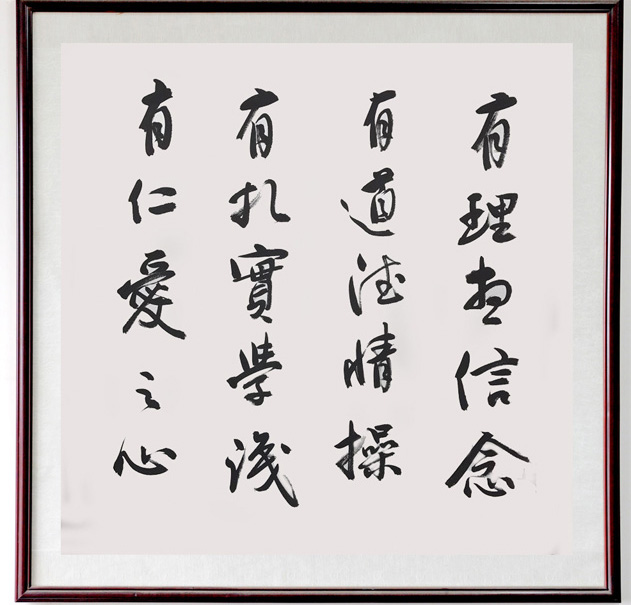 有理想信念
有道德情操
有扎實學識
有仁愛之心